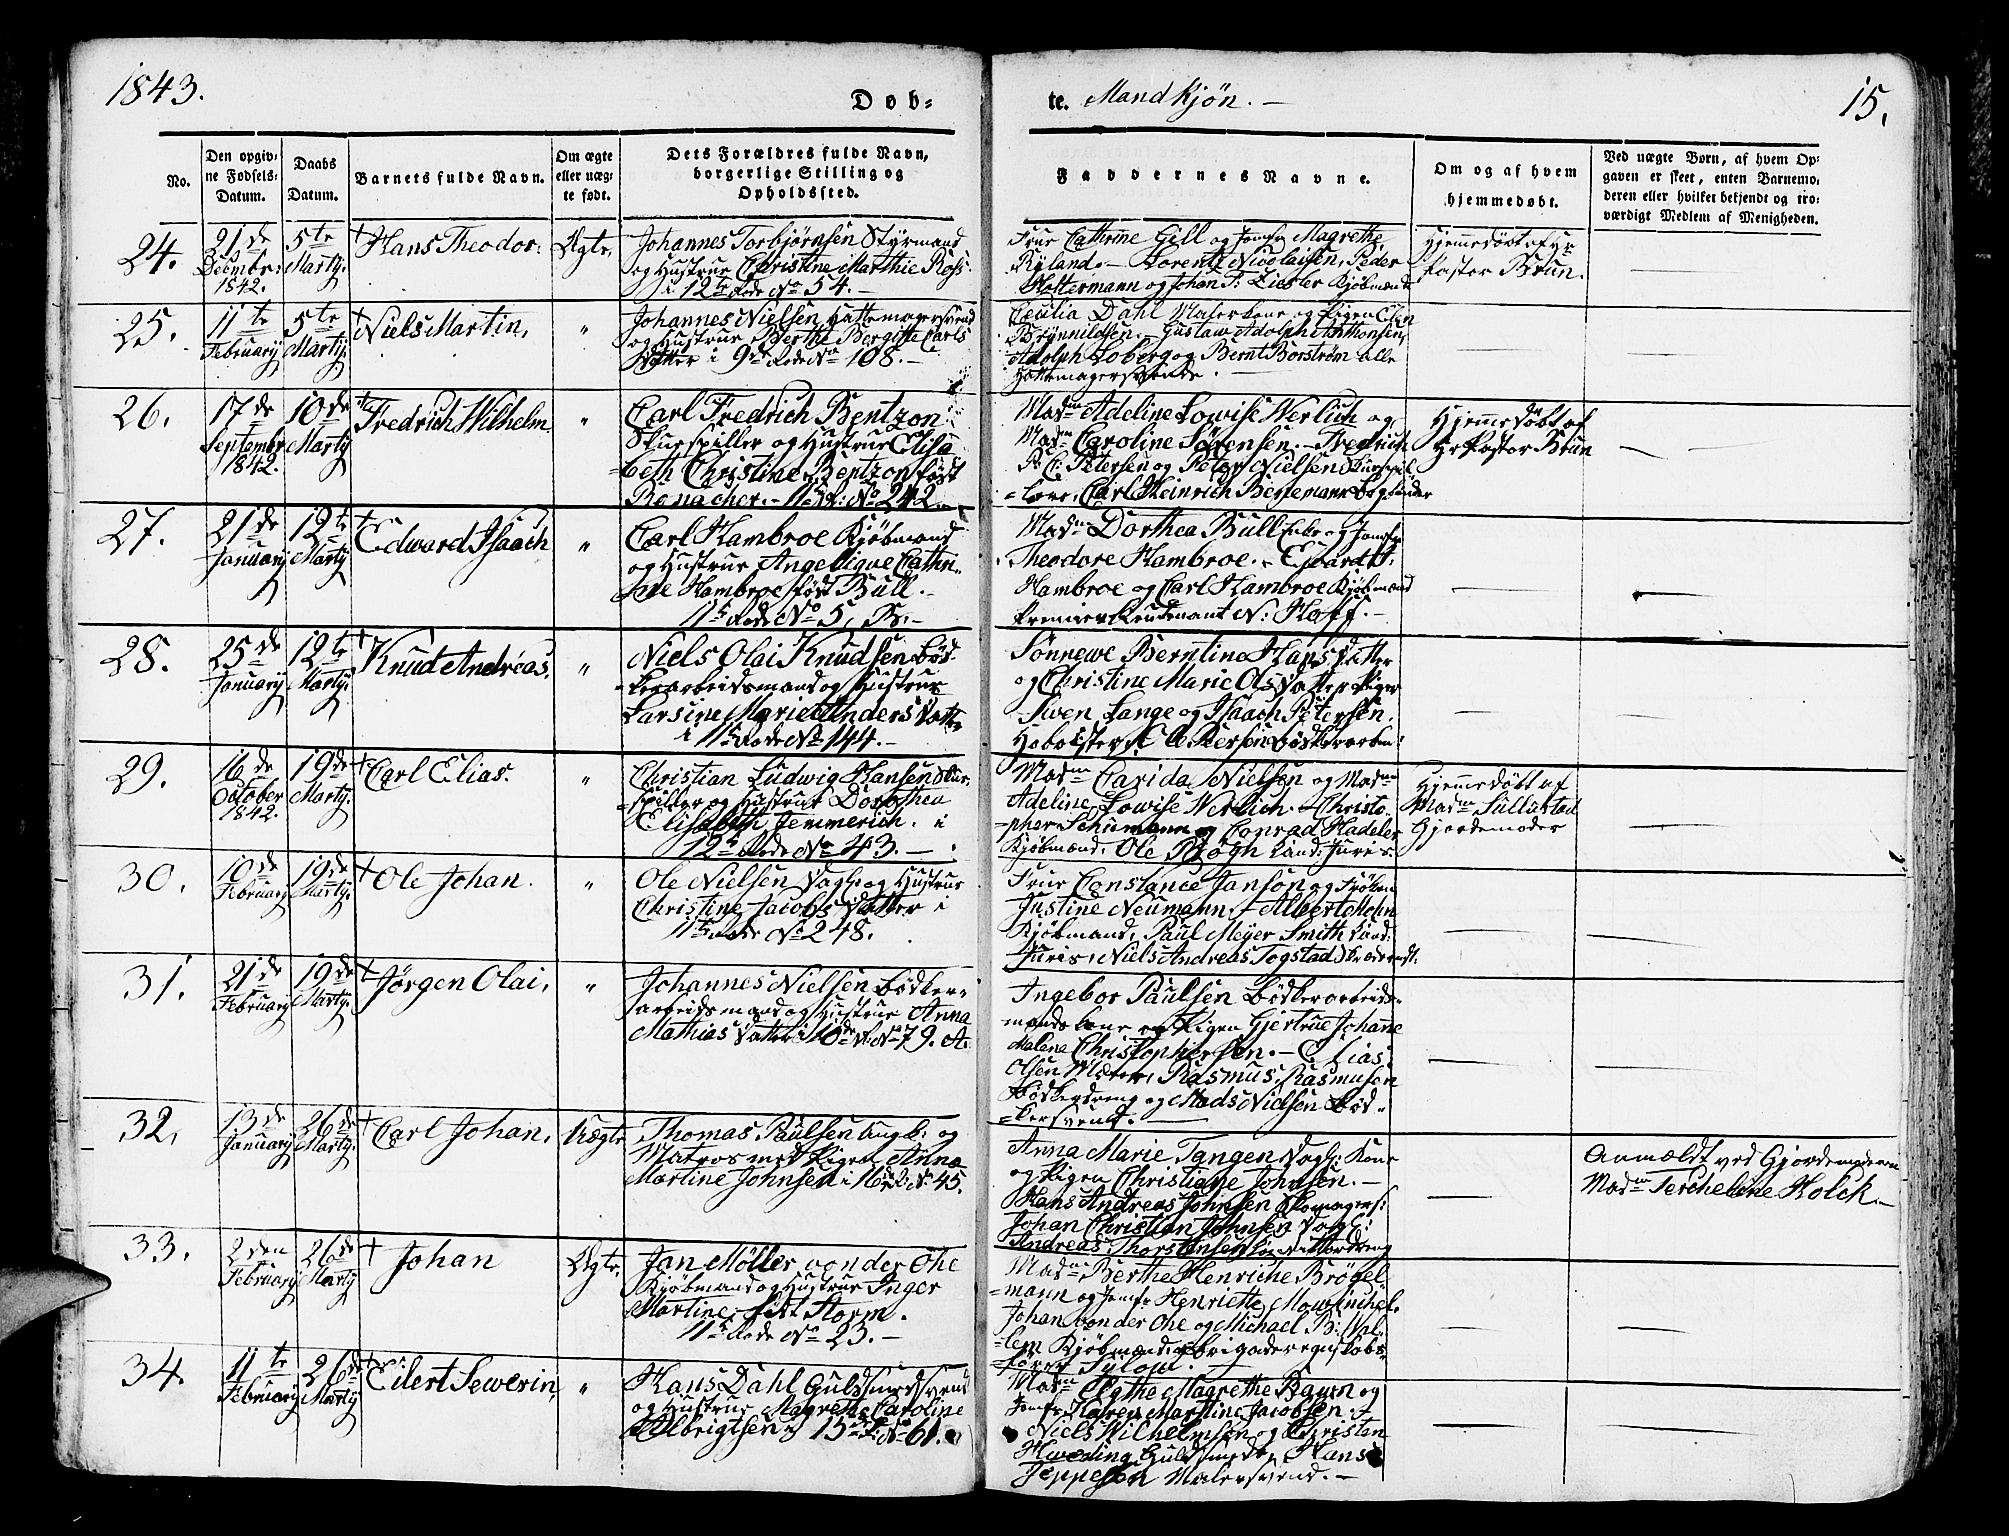 1843.
Døb-
te. Mandkjön. —
15.
No.
Den opgiv-
ne Fødsels-
Datum.
Daabs
Datum.
Barnets fulde Navn.
Om ægte
eller uæg-
te født.
Dets Forældres fulde Navn,
borgerlige Stilling og
Opholdssted.
Faddernes Navne.
Om og af hvem
hjemmedøbt.
Ved uægte Børn, af hvem Op-
gaven er skeet, enten Barnemo-
deren eller hvilket bekjendt og tro-
værdigt Medlem af Menigheden.
24.
21de
Decmbr:
1842.
5te
Marty.
Hans Theodor.
Ægte.
Johannes Torbjørnsen Styrmand
og Hustrue Christine Marthie Ross
i 12te Rode No 54. —
Frue Cathrine Gill og Jomfr Magrethe
Ryland. — Lorentz Nicolaisen, Peder
Holtermann og Johan F: Ziesler Kjøbmænd
Hjemmedøbt af Hr
Pastor Brun.
25.
11te
February
5te
Marty.
Niels Martin,
"
Johannes Nielsen Hattemagersvend
og Hustrue Berthe Bergitte Carls
Datter i 9de Rode No 108. —
Cecilia Dahl Malerkone og Pigen Elen
Brynnildsen. — Gustaw Adolph Anthonsen,
Adolph Loberg og Bernt Borström alle
Hattemagersvende.
26.
17de
Septembr
1842.
10de
Marty
Fredrich Wilhelm
"
Carl Fredrich Bentzon
Skuespiller og Hustrue Elisa
=beth Christine Bentzon født
Ronacher. — 11te R: No 242.
Madm Adeline Lowise Werlich og
Madm Caroline Sörensen. — Fredrich
P. C: Petersen og Peter Nielsen Skuespil
=lere, Carl Heinrich Bergemann
Hjemmedöbt af
Hr Pastor Brun
27.
21de
January
12te
Marty
Edward Isaach
"
Carl Hambroe Kjøbmand
og Hustrue Angelique Cathri-
ne Hambroe født Bull. —
11te Rode No 5, B. —
Madm Dorthea Bull Enke og Jomfr
Theodore Hambroe. — Edvard I.
Hambroe og Carl Hambroe Kjøbmænd
Premier Leutenant N: Hoff. —
28.
25de
January
12te
Marty.
Knud Andreas.
"
Niels Olai Knudsen Bød-
kerarbeidsmand og Hustrue
Larsine Marie Anders Datter
i 11te Rode No 144. —
Sönnewe Berntine Hans Datter
og Christine Marie Ols Datter Piger
Swen Lange og Isaach Petersen,
29.
16de
October
1842.
19de
Marty.
Carl Elias.
"
Christian Ludwig Hansen Skue-
=spiller og Hustrue Dorothea
Elisabeth Jemmerich. i
12te Rode No 43. —
Madm Carida Nielsen og Madm
Adeline Lowise Werlich. — Christo
=pher Schumann og Conrad Hadeler
Kjøbmænd. Ole Bøgh Cand: Juris.
Hjemmedöbt af
Madm Sullestad
Gjordemoder
30.
10de
February
19de
Marty.
Ole Johan.
"
Ole Nielsen Dagk: og Hustrue
Christine Jacobs Datter i
11te Rode No 248.
Frue Constance Janson og Fröken
Justine Neumann. — Albert Mohn
Kjøbmand, Paul Meyer Smith Cand:
Juris, Niels Andreas Togstad
31.
21de
February
19de
Marty.
Jørgen Olai,
"
Johannes Nielsen Bødker-
arbeidsmand og Hustrue Anna
Mathias Datter i 10de R. No 79. A.
Ingebor Paulsen Bødkerarbeids-
mands kone og Pigen Gjertrue Johanne
Malene Christophersen. — Elias
Olsen, Rasmus Rasmusen
Bødkerdreng og Mads Nielsen Bød-
=kersvend.
32.
13de
January
26de
Marty.
Carl Johan,
Uægte
Thomas Paulsen Ungk: og
Matros med Pigen Anne
Martine Johnsen i 16de R: No 45.
Anna Marie Tangen Dagk: Kone
og Pigen Christiane Johnsen. —
Hans Andreas Johnsen Skomagers:
Johan Christian Johnsen Dagk:
Andreas Thorstensen
Anmeldt ved Gjordemoderen
Madm Tercheline Holck.
33.
2den
February
26de
Marty
Johan
Ægte.
Jan Møller von der Ohe
Kjøbmand og Hustrue Inger
Martine født Storm.
11te Rode No 23. —
Madm Berthe Henriche Brögel
mann og Jomfr Henriette Mowinchel.
Johan von der Ohe og Michael B: Wal-
lem Kjøbmænd, Brigaderegnskabs-
=fører Sylow.
34.
11te
February
26de
Marty
Eilert Sewerin,
"
Hans Dahl Guldsmedsvend
og Hustrue Magrethe Caroline
Albrigtsen, 15de R: No 61.
Madm Magrethe Baum og
Jomfr Karen Martine Jacobsen.
Niels Wilhelmsen og Christen
Hweding Guldsmede, Hans
Jeppesen Malersvend. —